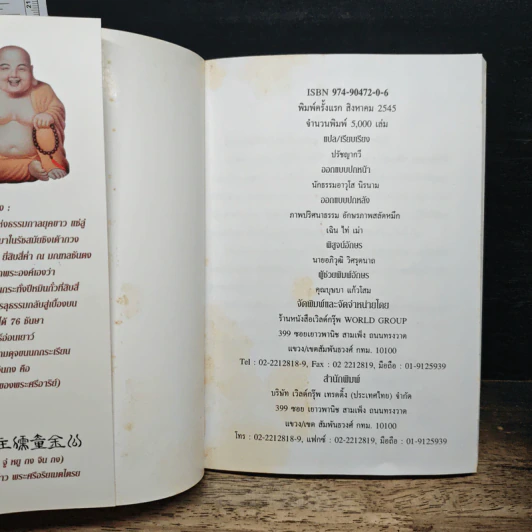 ง :
ห่งธรรมกาลยุคขาว แซ่สู่
มาในรัชสมัยชิงเต้ากวง
ยี่สิบสี่ค่ำ ณ มณฑลซันตง
กพระองค์เองว่า
กระทั่งปีหมินกั๋วที่สิบสี่
รลุธรรมกลับสู่เบื้องบน
ได้ 76 ชันษา
อ่อนเยาว์
ามดุจขนนกกระเรียน
จินกง คือ
ของพระศรีอาริย์)
儒童金公
จู่ หยู ถง จิน กง)
าว พระศรีอริยเมตไตรย
ISBN 974-90472-0-6
พิมพ์ครั้งแรก สิงหาคม 2545
จำนวนพิมพ์ 5,000 เล่ม
แปล/เรียบเรียง
ปรัชญากวี
ออกแบบปกหน้า
นักธรรมอาวุโส นิรนาม
ออกแบบปกหลัง
ภาพปริศนาธรรม อักษรภาพสลัดหมึก
เฉิน ไท่ เม่า
พิสูจน์อักษร
นายอภิวุฒิ วิศรุตนาถ
ผู้ช่วยพิมพ์อักษร
คุณบุษบา แก้วโสม
จัดพิมพ์และจัดจำหน่ายโดย
ร้านหนังสือเวิลด์กรุ๊พ WORLD GROUP
399 ซอยเยาวพานิช สามเพ็ง ถนนทรงวาด
แขวง/เขตสัมพันธวงศ์ กทม. 10100
Tel : 02-2212818-9, Fax : 02 2212819, มือถือ : 01-9125939
สำนักพิมพ์
บริษัท เวิลด์กรุ๊พ เทรดดิ้ง (ประเทศไทย) จำกัด
399 ซอย เยาวพานิช สามเพ็ง ถนนทรงวาด
แขวง/เขต สัมพันธวงศ์ กทม. 10100
โทร : 02-2212818-9, แฟกซ์ : 02-2212819, มือถือ : 01-9125939